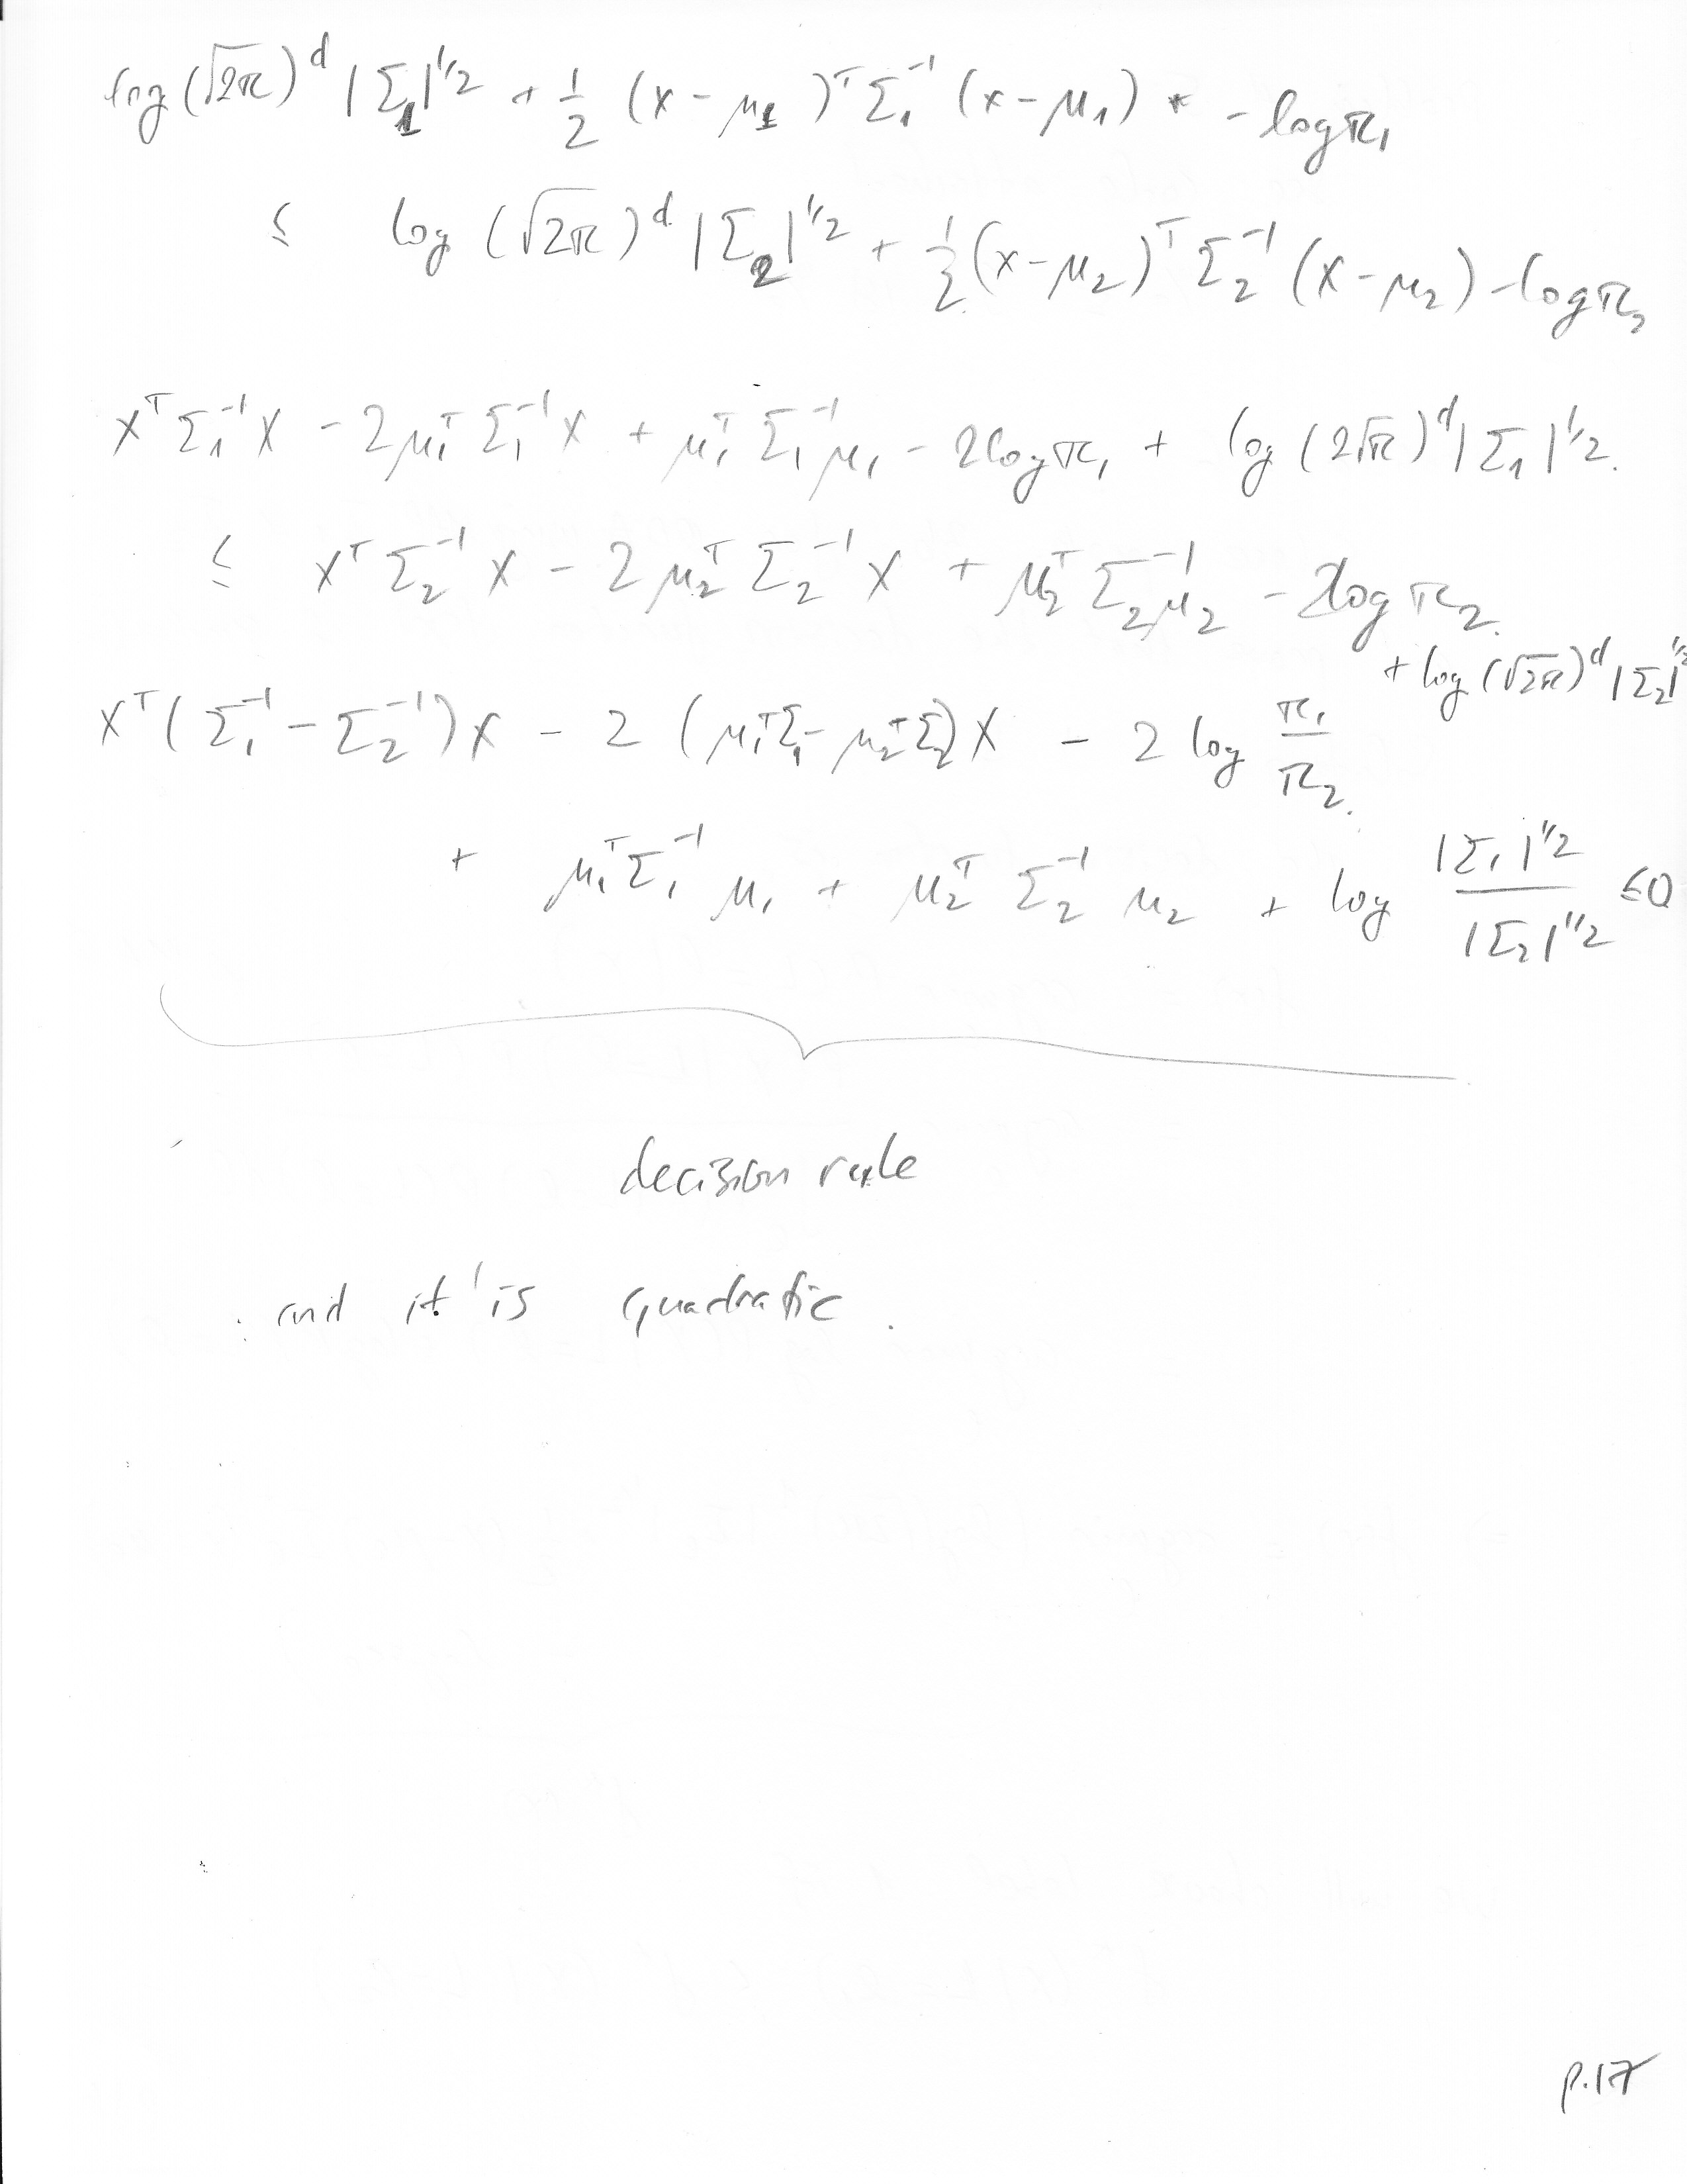 log (√2π)^d |Σ₁|^1/2 + 1/2 (x - μ₁)^T Σ₁^-1 (x - μ₁) + - log π₁
≤ log (√2π)^d |Σ₂|^1/2 + 1/2 (x - μ₂)^T Σ₂^-1 (x - μ₂) - log π₂
x^T Σ₁^-1 x - 2 μ₁^T Σ₁^-1 x + μ₁^T Σ₁^-1 μ₁ - 2 log π₁ + log (2√π)^d |Σ₁|^1/2.
≤ x^T Σ₂^-1 x - 2 μ₂^T Σ₂^-1 x + μ₂^T Σ₂^-1 μ₂ - 2 log π₂.
+ log (√2π)^d |Σ₂|^1/2
x^T (Σ₁^-1 - Σ₂^-1) x - 2 (μ₁^T Σ₁ - μ₂^T Σ₂) x - 2 log π₁/π₂.
+ μ₁^T Σ₁^-1 μ₁ + μ₂^T Σ₂^-1 μ₂ + log |Σ₁|^1/2 / |Σ₂|^1/2 ≤ 0
decision rule
and it is quadratic.
p.17